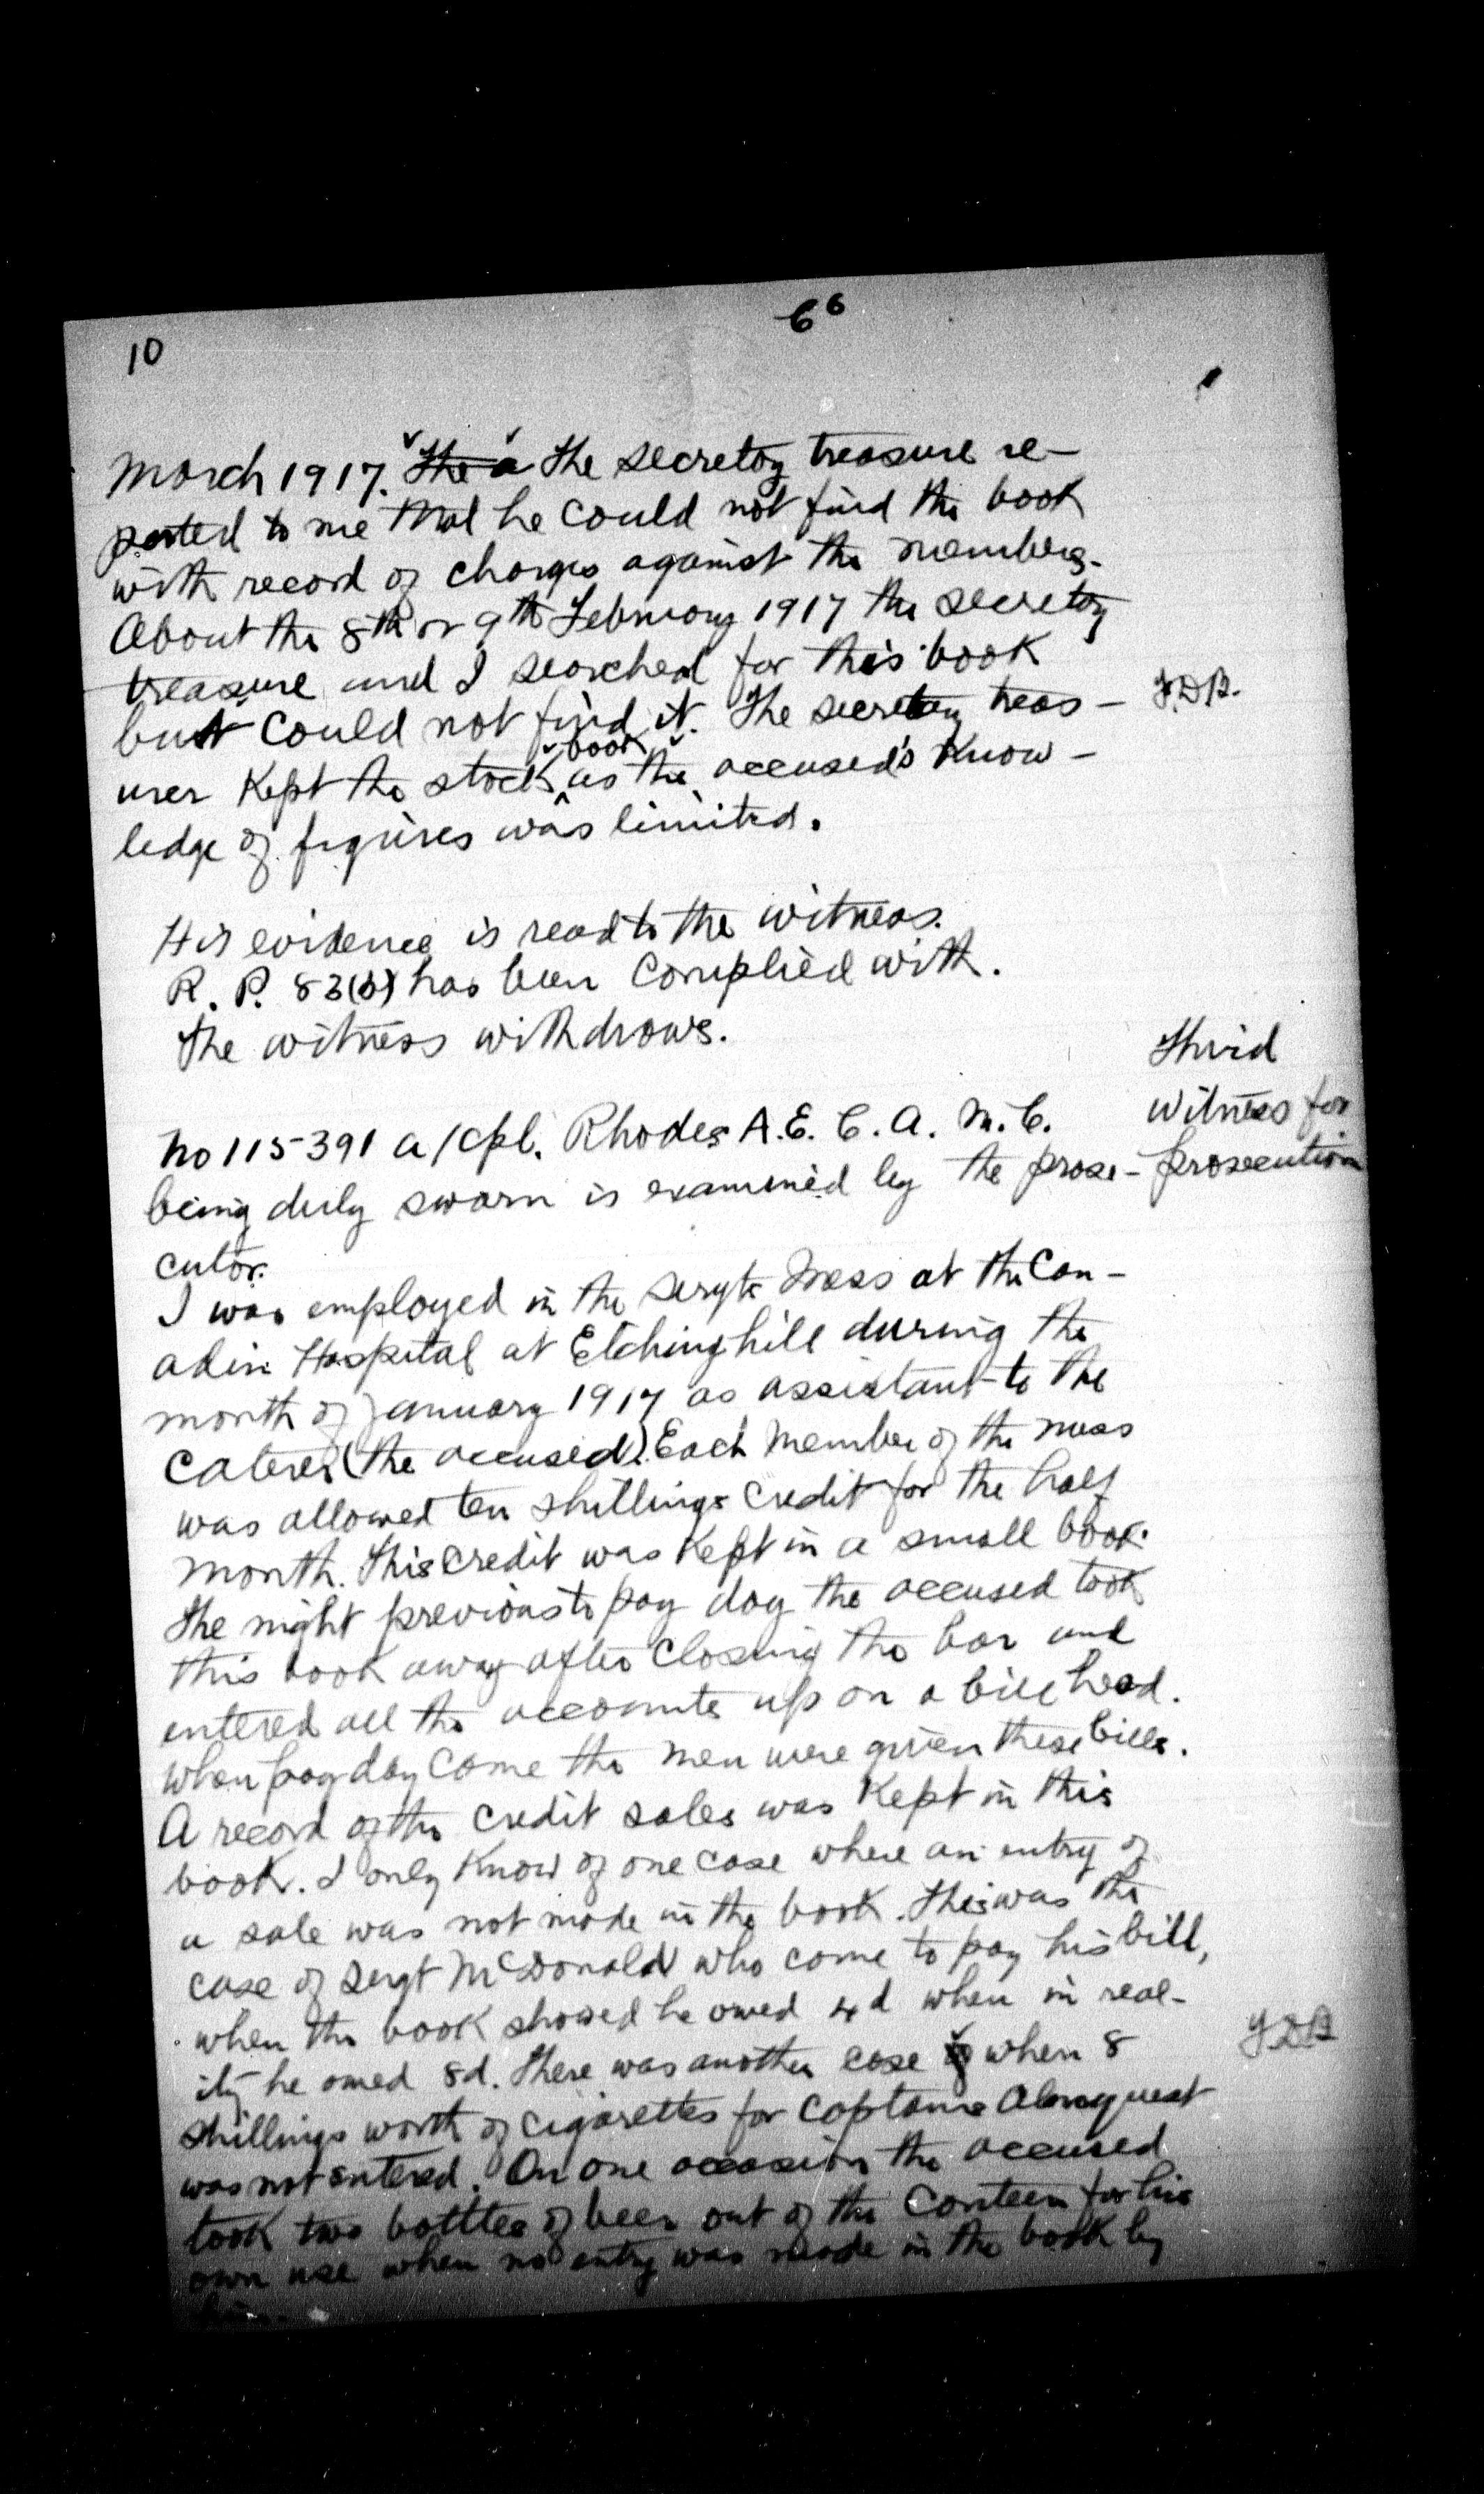 10
66
March 1917. The a the secretay treasure re-
ported to me that he could not find the book
with record of charges against the members.
About the 8th or 9th February 1917 the secretay
treasure and I searched for this book
but could not find it. The secretay treas-
J.D.B.
book
urer kept the stock as the accused's know-
ledge of figures was limited.
His evidence is read to the witness.
R. P. 83(b) has been complied with.
The witness withdraws.
Third
witness for
prosecution
No 115391 a/cpl. Rhodes A.E. C.A.M.C.
being duly sworn is examined by the prose-
cutor.
I was employed in the Sergts Mess at the Can-
adin Hospital at Etchinghill during the
month of January 1917 as assistant to the
Caterer (the accused). Each member of the mess
was allowed ten shillings credit for the half
month. This credit was kept in a small book.
The night previous to pay day the accused took
this book away after closing the bar and
entered all the accounts up on a bill head.
When pay day came the men were given these bills.
A record of the credit sales was kept in this
book. I only know of one case where an entry of
a sale was not made in the book. This was the
case of Sergt McDonald who came to pay his bill,
when the book showed he owed 4d when in real-
ity he owed 8d. There was another case of when 8
J.D.B
shillings worth of cigarettes for Captain
was not entered. On one occasion the accused
took two bottles of beer out of the Canteen for his
own use when no entry was made in the book by
him.